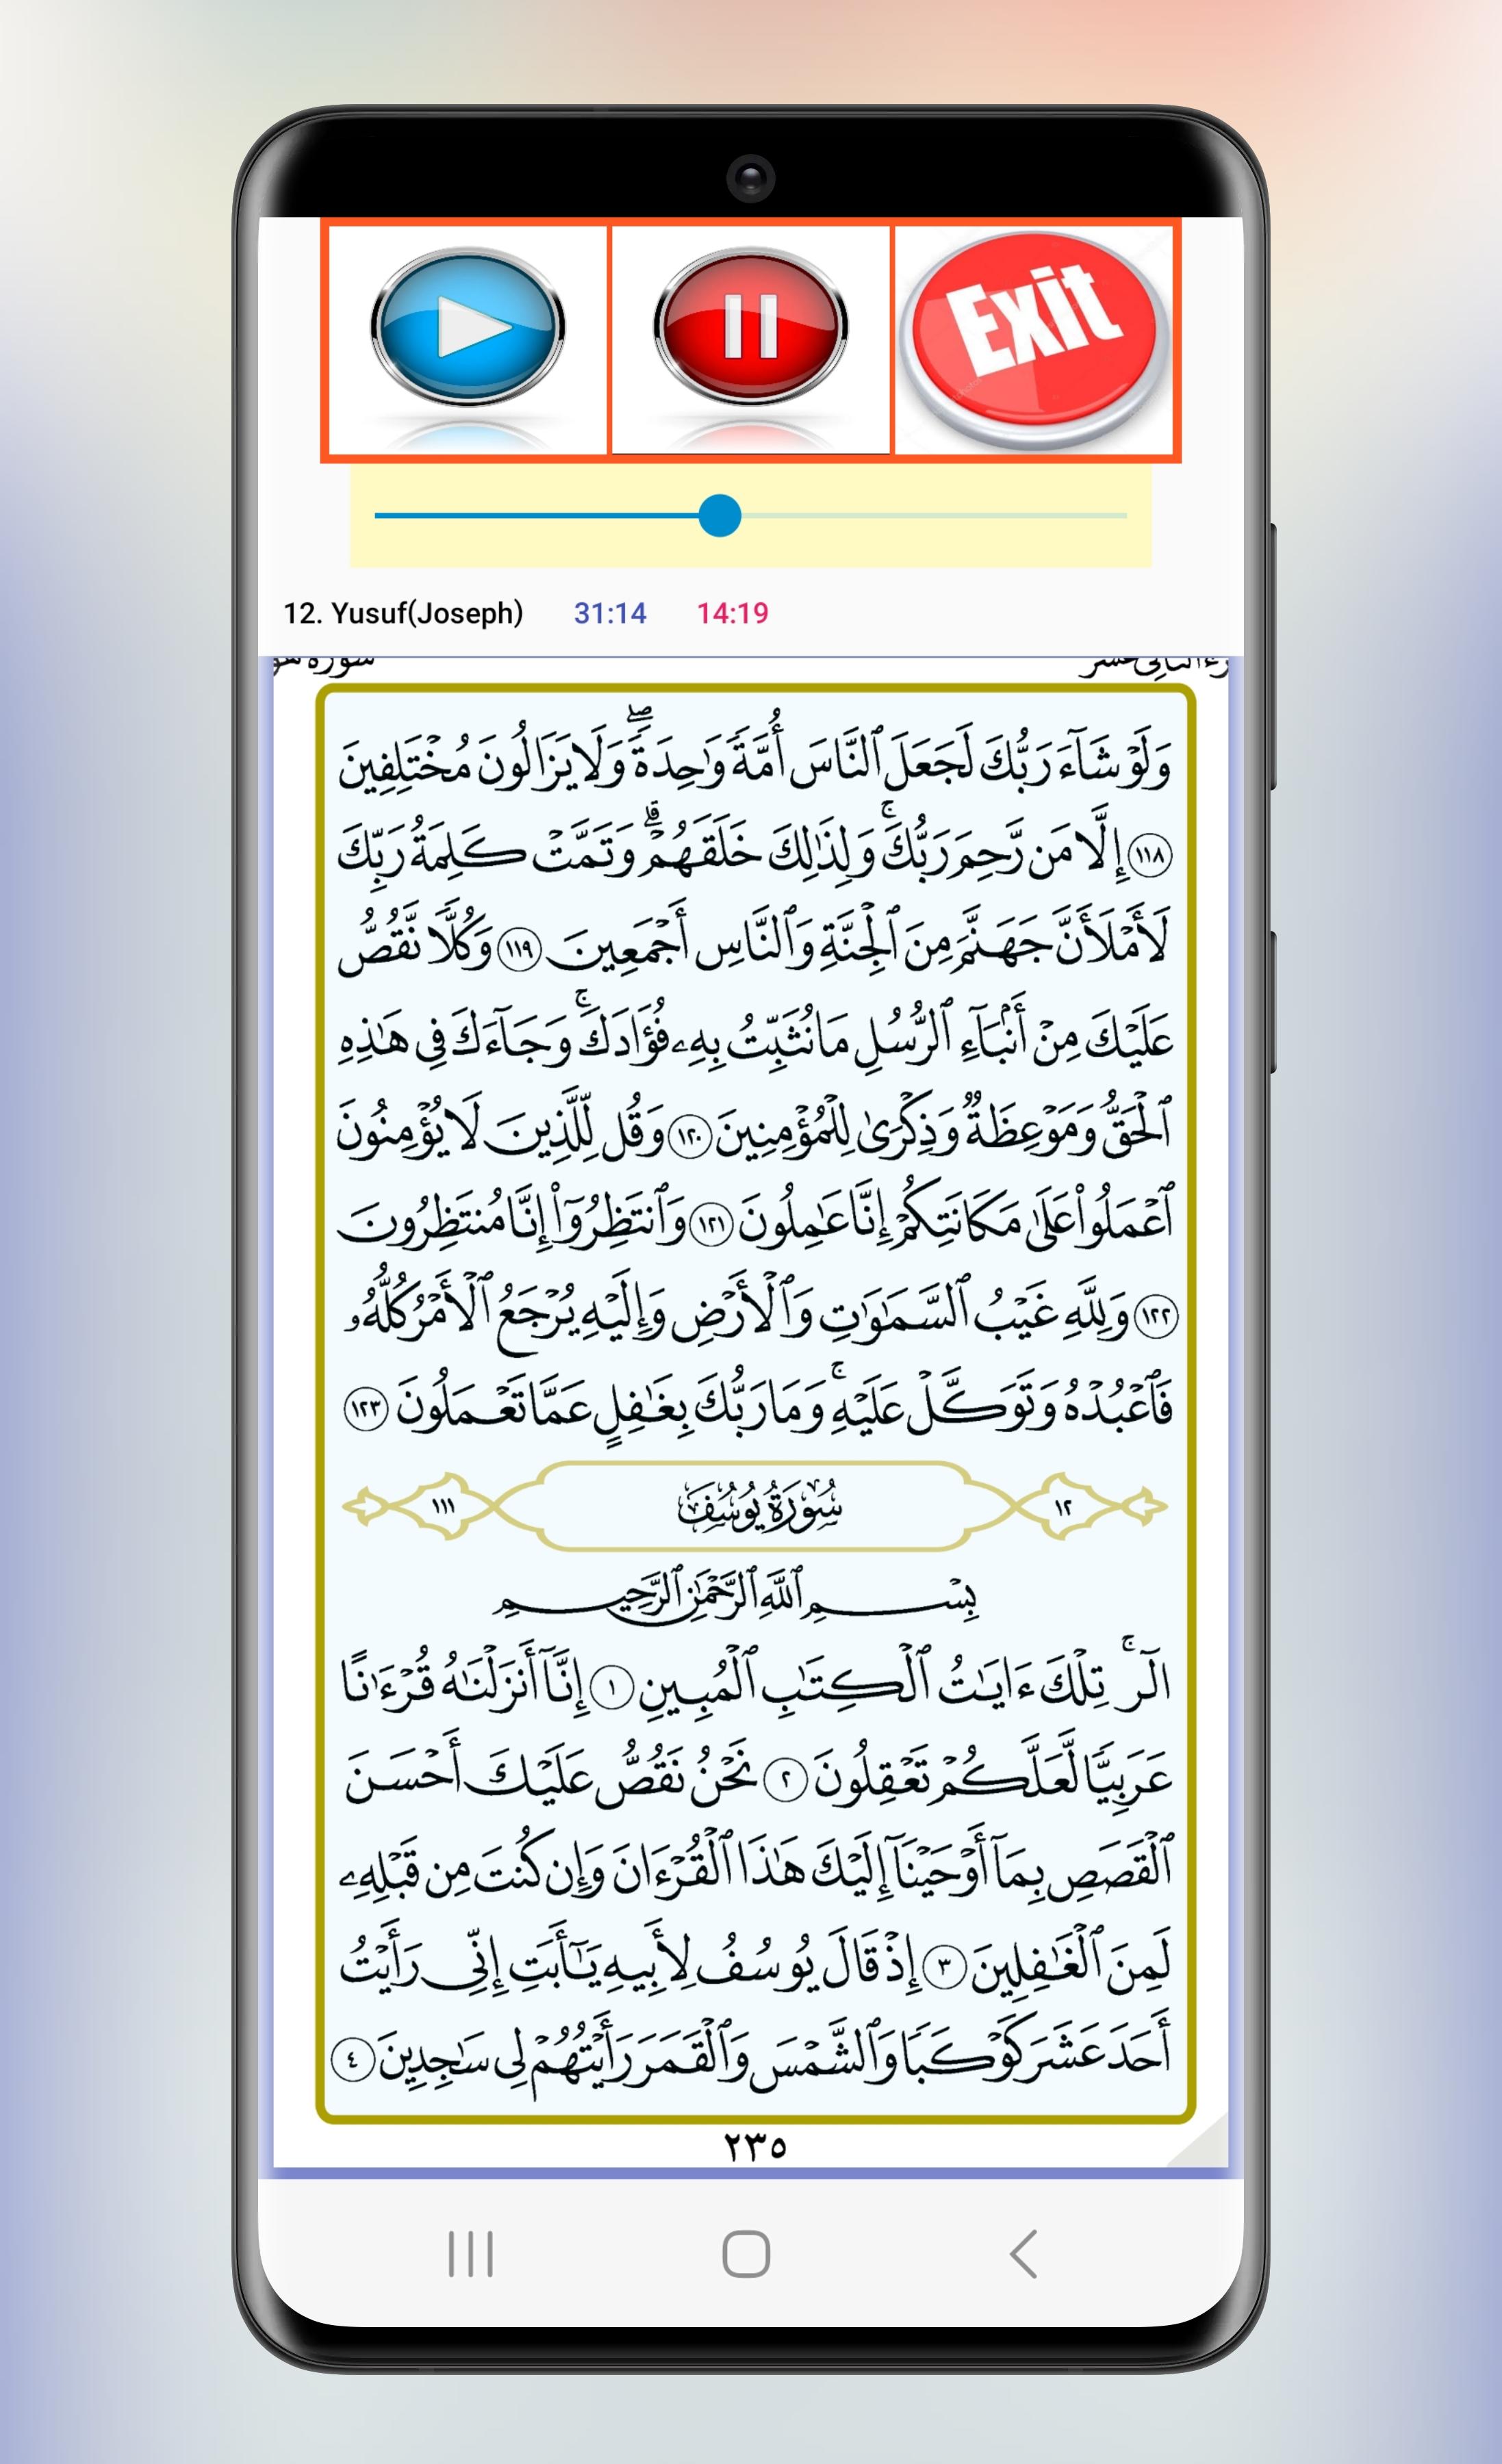 Exit
12. Yusuf(Joseph) 31:14 14:19
وَلَوْ شَآءَ رَبُّكَ لَجَعَلَ ٱلنَّاسَ أُمَّةً وَٰحِدَةً ۖ وَلَا يَزَالُونَ مُخْتَلِفِينَ
١١٨ إِلَّا مَن رَّحِمَ رَبُّكَ ۚ وَلِذَٰلِكَ خَلَقَهُمْ ۗ وَتَمَّتْ كَلِمَةُ رَبِّكَ
لَأَمْلَأَنَّ جَهَنَّمَ مِنَ ٱلْجِنَّةِ وَٱلنَّاسِ أَجْمَعِينَ ١١٩ وَكُلًّا نَّقُصُّ
عَلَيْكَ مِنْ أَنۢبَآءِ ٱلرُّسُلِ مَا نُثَبِّتُ بِهِۦ فُؤَادَكَ ۚ وَجَآءَكَ فِى هَٰذِهِ
ٱلْحَقُّ وَمَوْعِظَةٌ وَذِكْرَىٰ لِلْمُؤْمِنِينَ ١٢٠ وَقُل لِّلَّذِينَ لَا يُؤْمِنُونَ
ٱعْمَلُوا۟ عَلَىٰ مَكَانَتِكُمْ إِنَّا عَٰمِلُونَ ١٢١ وَٱنتَظِرُوٓا۟ إِنَّا مُنتَظِرُونَ
١٢٢ وَلِلَّهِ غَيْبُ ٱلسَّمَٰوَٰتِ وَٱلْأَرْضِ وَإِلَيْهِ يُرْجَعُ ٱلْأَمْرُ كُلُّهُۥ
فَٱعْبُدْهُ وَتَوَكَّلْ عَلَيْهِ ۚ وَمَا رَبُّكَ بِغَٰفِلٍ عَمَّا تَعْمَلُونَ ١٢٣
١٢ سُورَةُ يُوسُفَ ١١١
بِسْمِ ٱللَّهِ ٱلرَّحْمَٰنِ ٱلرَّحِيمِ
الٓر ۚ تِلْكَ ءَايَٰتُ ٱلْكِتَٰبِ ٱلْمُبِينِ ١ إِنَّآ أَنزَلْنَٰهُ قُرْءَٰنًا
عَرَبِيًّا لَّعَلَّكُمْ تَعْقِلُونَ ٢ نَحْنُ نَقُصُّ عَلَيْكَ أَحْسَنَ
ٱلْقَصَصِ بِمَآ أَوْحَيْنَآ إِلَيْكَ هَٰذَا ٱلْقُرْءَانَ وَإِن كُنتَ مِن قَبْلِهِۦ
لَمِنَ ٱلْغَٰفِلِينَ ٣ إِذْ قَالَ يُوسُفُ لِأَبِيهِ يَٰٓأَبَتِ إِنِّى رَأَيْتُ
أَحَدَ عَشَرَ كَوْكَبًا وَٱلشَّمْسَ وَٱلْقَمَرَ رَأَيْتُهُمْ لِى سَٰجِدِينَ ٤
٢٣٥